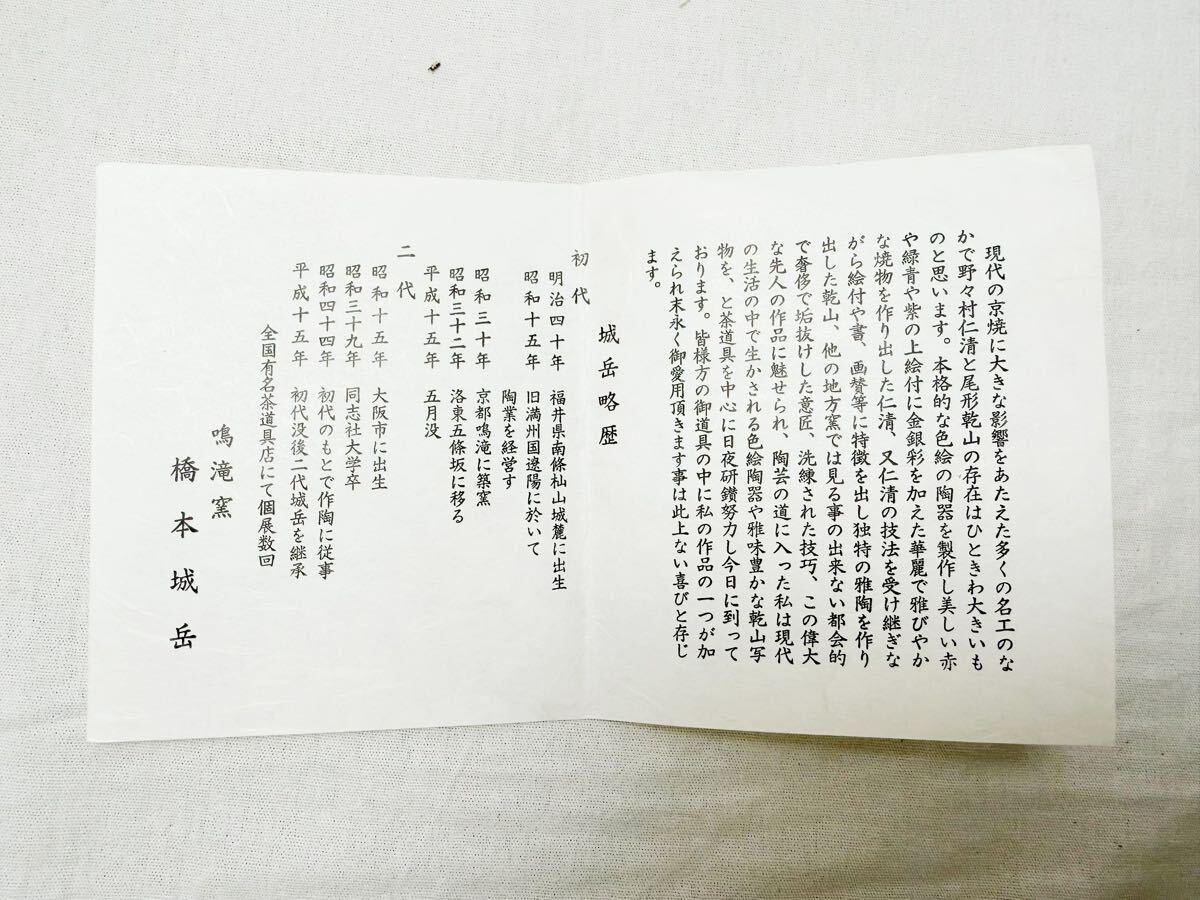 現代の京焼に大きな影響をあたえた多くの名工のな
かで野々村仁清と尾形乾山の存在はひときわ大きいも
のと思います。本格的な色絵の陶器を製作し美しい赤
や緑青や紫の上絵付に金銀彩を加えた華麗で雅びやか
な焼物を作り出した仁清、又仁清の技法を受け継ぎな
がら絵付や書、画賛等に特徴を出し独特の雅陶を作り
出した乾山、他の地方窯では見る事の出来ない都会的
で奢侈で垢抜けした意匠、洗練された技巧、この偉大
な先人の作品に魅せられ、陶芸の道に入った私は現代
の生活の中で生かされる色絵陶器や雅味豊かな乾山写
物を、と茶道具を中心に日夜研鑽努力し今日に到って
おります。皆様方の御道具の中に私の作品の一つが加
えられ末永く御愛用頂きます事は此上ない喜びと存じ
ます。
城岳略歴
初代
明治四十年 福井県南條杣山城麓に出生
昭和十五年 旧満州国遼陽に於いて
陶業を経営す
昭和三十年 京都鳴滝に築窯
昭和三十二年 洛東五條坂に移る
平成十五年 五月没
二代
昭和十五年 大阪市に出生
昭和三十九年 同志社大学卒
昭和四十四年 初代のもとで作陶に従事
平成十五年 初代没後二代城岳を継承
全国有名茶道具店にて個展数回
鳴滝窯
橋本城岳